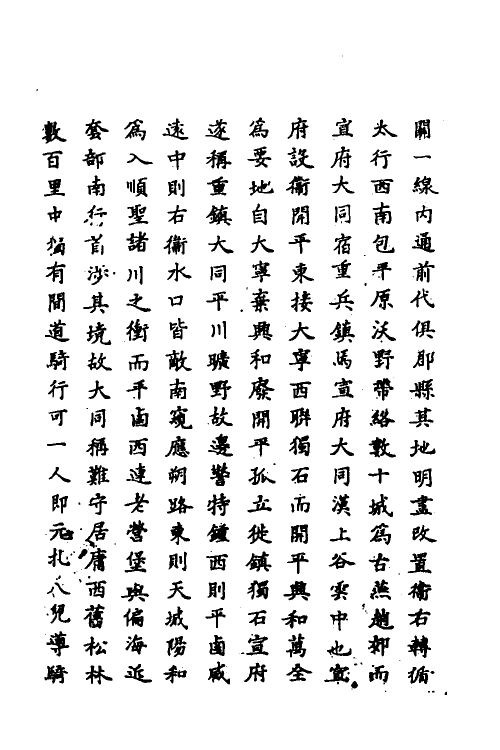 關一線內通前代俱郡縣其地明盡改置衛右轉循
太行西南包平原沃野帶絡數十城爲古燕趙郊而
宣府大同宿重兵鎮焉宣府大同漢上谷雲中也宣
府設衛開平東接大寧西聯獨石而開平興和萬全
爲要地自大寧棄興和廢開平孤立徙鎮獨石宣府
遂稱重鎮大同平川曠野故邊警特鍾西則平鹵威
遠中則右衛水口皆敵南窺應朔路東則天城陽和
爲入順聖諸川之衝而平鹵西連老營堡與偏海近
套部南行首涉其境故大同稱難守居庸西舊松林
數百里中猶有間道騎行可一人即元札八兒導騎